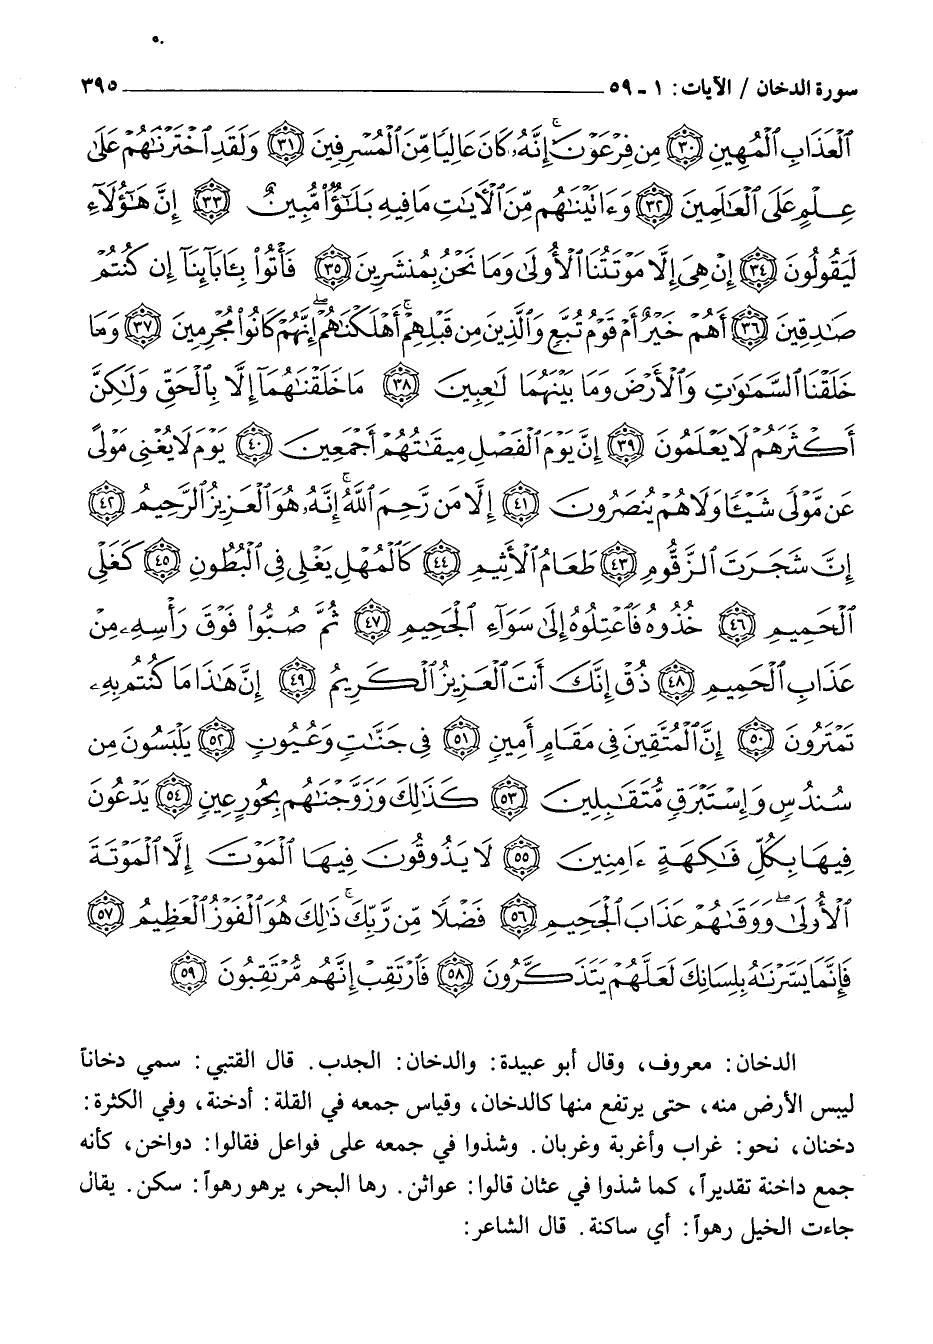 سورة الدخان / الآيات: ١ - ٥٩ ٣٩٥
ٱلْعَذَابِ ٱلْمُهِينِ ﴿٣٠﴾ مِن فِرْعَوْنَ ۚ إِنَّهُۥ كَانَ عَالِيًا مِّنَ ٱلْمُسْرِفِينَ ﴿٣١﴾ وَلَقَدِ ٱخْتَرْنَٰهُمْ عَلَىٰ
عِلْمٍ عَلَى ٱلْعَٰلَمِينَ ﴿٣٢﴾ وَءَاتَيْنَٰهُم مِّنَ ٱلْأَيَٰتِ مَا فِيهِ بَلَٰٓؤٌا۟ مُّبِينٌ ﴿٣٣﴾ إِنَّ هَٰٓؤُلَآءِ
لَيَقُولُونَ ﴿٣٤﴾ إِنْ هِىَ إِلَّا مَوْتَتُنَا ٱلْأُولَىٰ وَمَا نَحْنُ بِمُنشَرِينَ ﴿٣٥﴾ فَأْتُوا۟ بِـَٔابَآئِنَآ إِن كُنتُمْ
صَٰدِقِينَ ﴿٣٦﴾ أَهُمْ خَيْرٌ أَمْ قَوْمُ تُبَّعٍ وَٱلَّذِينَ مِن قَبْلِهِمْ ۚ أَهْلَكْنَٰهُمْ ۖ إِنَّهُمْ كَانُوا۟ مُجْرِمِينَ ﴿٣٧﴾ وَمَا
خَلَقْنَا ٱلسَّمَٰوَٰتِ وَٱلْأَرْضَ وَمَا بَيْنَهُمَا لَٰعِبِينَ ﴿٣٨﴾ مَا خَلَقْنَٰهُمَآ إِلَّا بِٱلْحَقِّ وَلَٰكِنَّ
أَكْثَرَهُمْ لَا يَعْلَمُونَ ﴿٣٩﴾ إِنَّ يَوْمَ ٱلْفَصْلِ مِيقَٰتُهُمْ أَجْمَعِينَ ﴿٤٠﴾ يَوْمَ لَا يُغْنِى مَوْلًى
عَن مَّوْلًى شَيْـًٔا وَلَا هُمْ يُنصَرُونَ ﴿٤١﴾ إِلَّا مَن رَّحِمَ ٱللَّهُ ۚ إِنَّهُۥ هُوَ ٱلْعَزِيزُ ٱلرَّحِيمُ ﴿٤٢﴾
إِنَّ شَجَرَتَ ٱلزَّقُّومِ ﴿٤٣﴾ طَعَامُ ٱلْأَثِيمِ ﴿٤٤﴾ كَٱلْمُهْلِ يَغْلِى فِى ٱلْبُطُونِ ﴿٤٥﴾ كَغَلْىِ
ٱلْحَمِيمِ ﴿٤٦﴾ خُذُوهُ فَٱعْتِلُوهُ إِلَىٰ سَوَآءِ ٱلْجَحِيمِ ﴿٤٧﴾ ثُمَّ صُبُّوا۟ فَوْقَ رَأْسِهِۦ مِنْ
عَذَابِ ٱلْحَمِيمِ ﴿٤٨﴾ ذُقْ إِنَّكَ أَنتَ ٱلْعَزِيزُ ٱلْكَرِيمُ ﴿٤٩﴾ إِنَّ هَٰذَا مَا كُنتُم بِهِۦ
تَمْتَرُونَ ﴿٥٠﴾ إِنَّ ٱلْمُتَّقِينَ فِى مَقَامٍ أَمِينٍ ﴿٥١﴾ فِى جَنَّٰتٍ وَعُيُونٍ ﴿٥٢﴾ يَلْبَسُونَ مِن
سُندُسٍ وَإِسْتَبْرَقٍ مُّتَقَٰبِلِينَ ﴿٥٣﴾ كَذَٰلِكَ وَزَوَّجْنَٰهُم بِحُورٍ عِينٍ ﴿٥٤﴾ يَدْعُونَ
فِيهَا بِكُلِّ فَٰكِهَةٍ ءَامِنِينَ ﴿٥٥﴾ لَا يَذُوقُونَ فِيهَا ٱلْمَوْتَ إِلَّا ٱلْمَوْتَةَ
ٱلْأُولَىٰ ۖ وَوَقَىٰهُمْ عَذَابَ ٱلْجَحِيمِ ﴿٥٦﴾ فَضْلًا مِّن رَّبِّكَ ۚ ذَٰلِكَ هُوَ ٱلْفَوْزُ ٱلْعَظِيمُ ﴿٥٧﴾
فَإِنَّمَا يَسَّرْنَٰهُ بِلِسَانِكَ لَعَلَّهُمْ يَتَذَكَّرُونَ ﴿٥٨﴾ فَٱرْتَقِبْ إِنَّهُم مُّرْتَقِبُونَ ﴿٥٩﴾
الدخان: معروف، وقال أبو عبيدة: والدخان: الجدب. قال القتبي: سمي دخاناً
ليبس الأرض منه، حتى يرتفع منها كالدخان، وقياس جمعه في القلة: أدخنة، وفي الكثرة:
دخنان، نحو: غراب وأغربة وغربان. وشذوا في جمعه على فواعل فقالوا: دواخن، كأنه
جمع داخنة تقديراً، كما شذوا في عثان قالوا: عواثن. رها البحر، يرهو رهواً: سكن. يقال
جاءت الخيل رهواً: أي ساكنة. قال الشاعر: